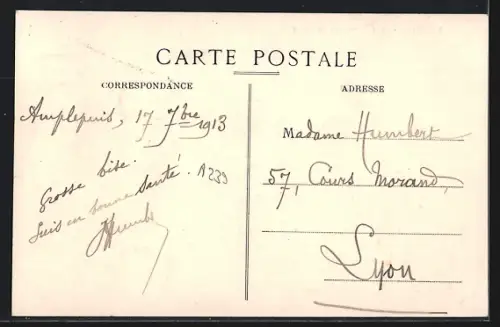 CARTE POSTALE
CORRESPONDANCE
ADRESSE
Amplepuis, 17 7bre 1913
Grosse bise.
Suis en bonne santé.
JHumbert
A239
Madame Humbert
57, Cours Morand,
Lyon